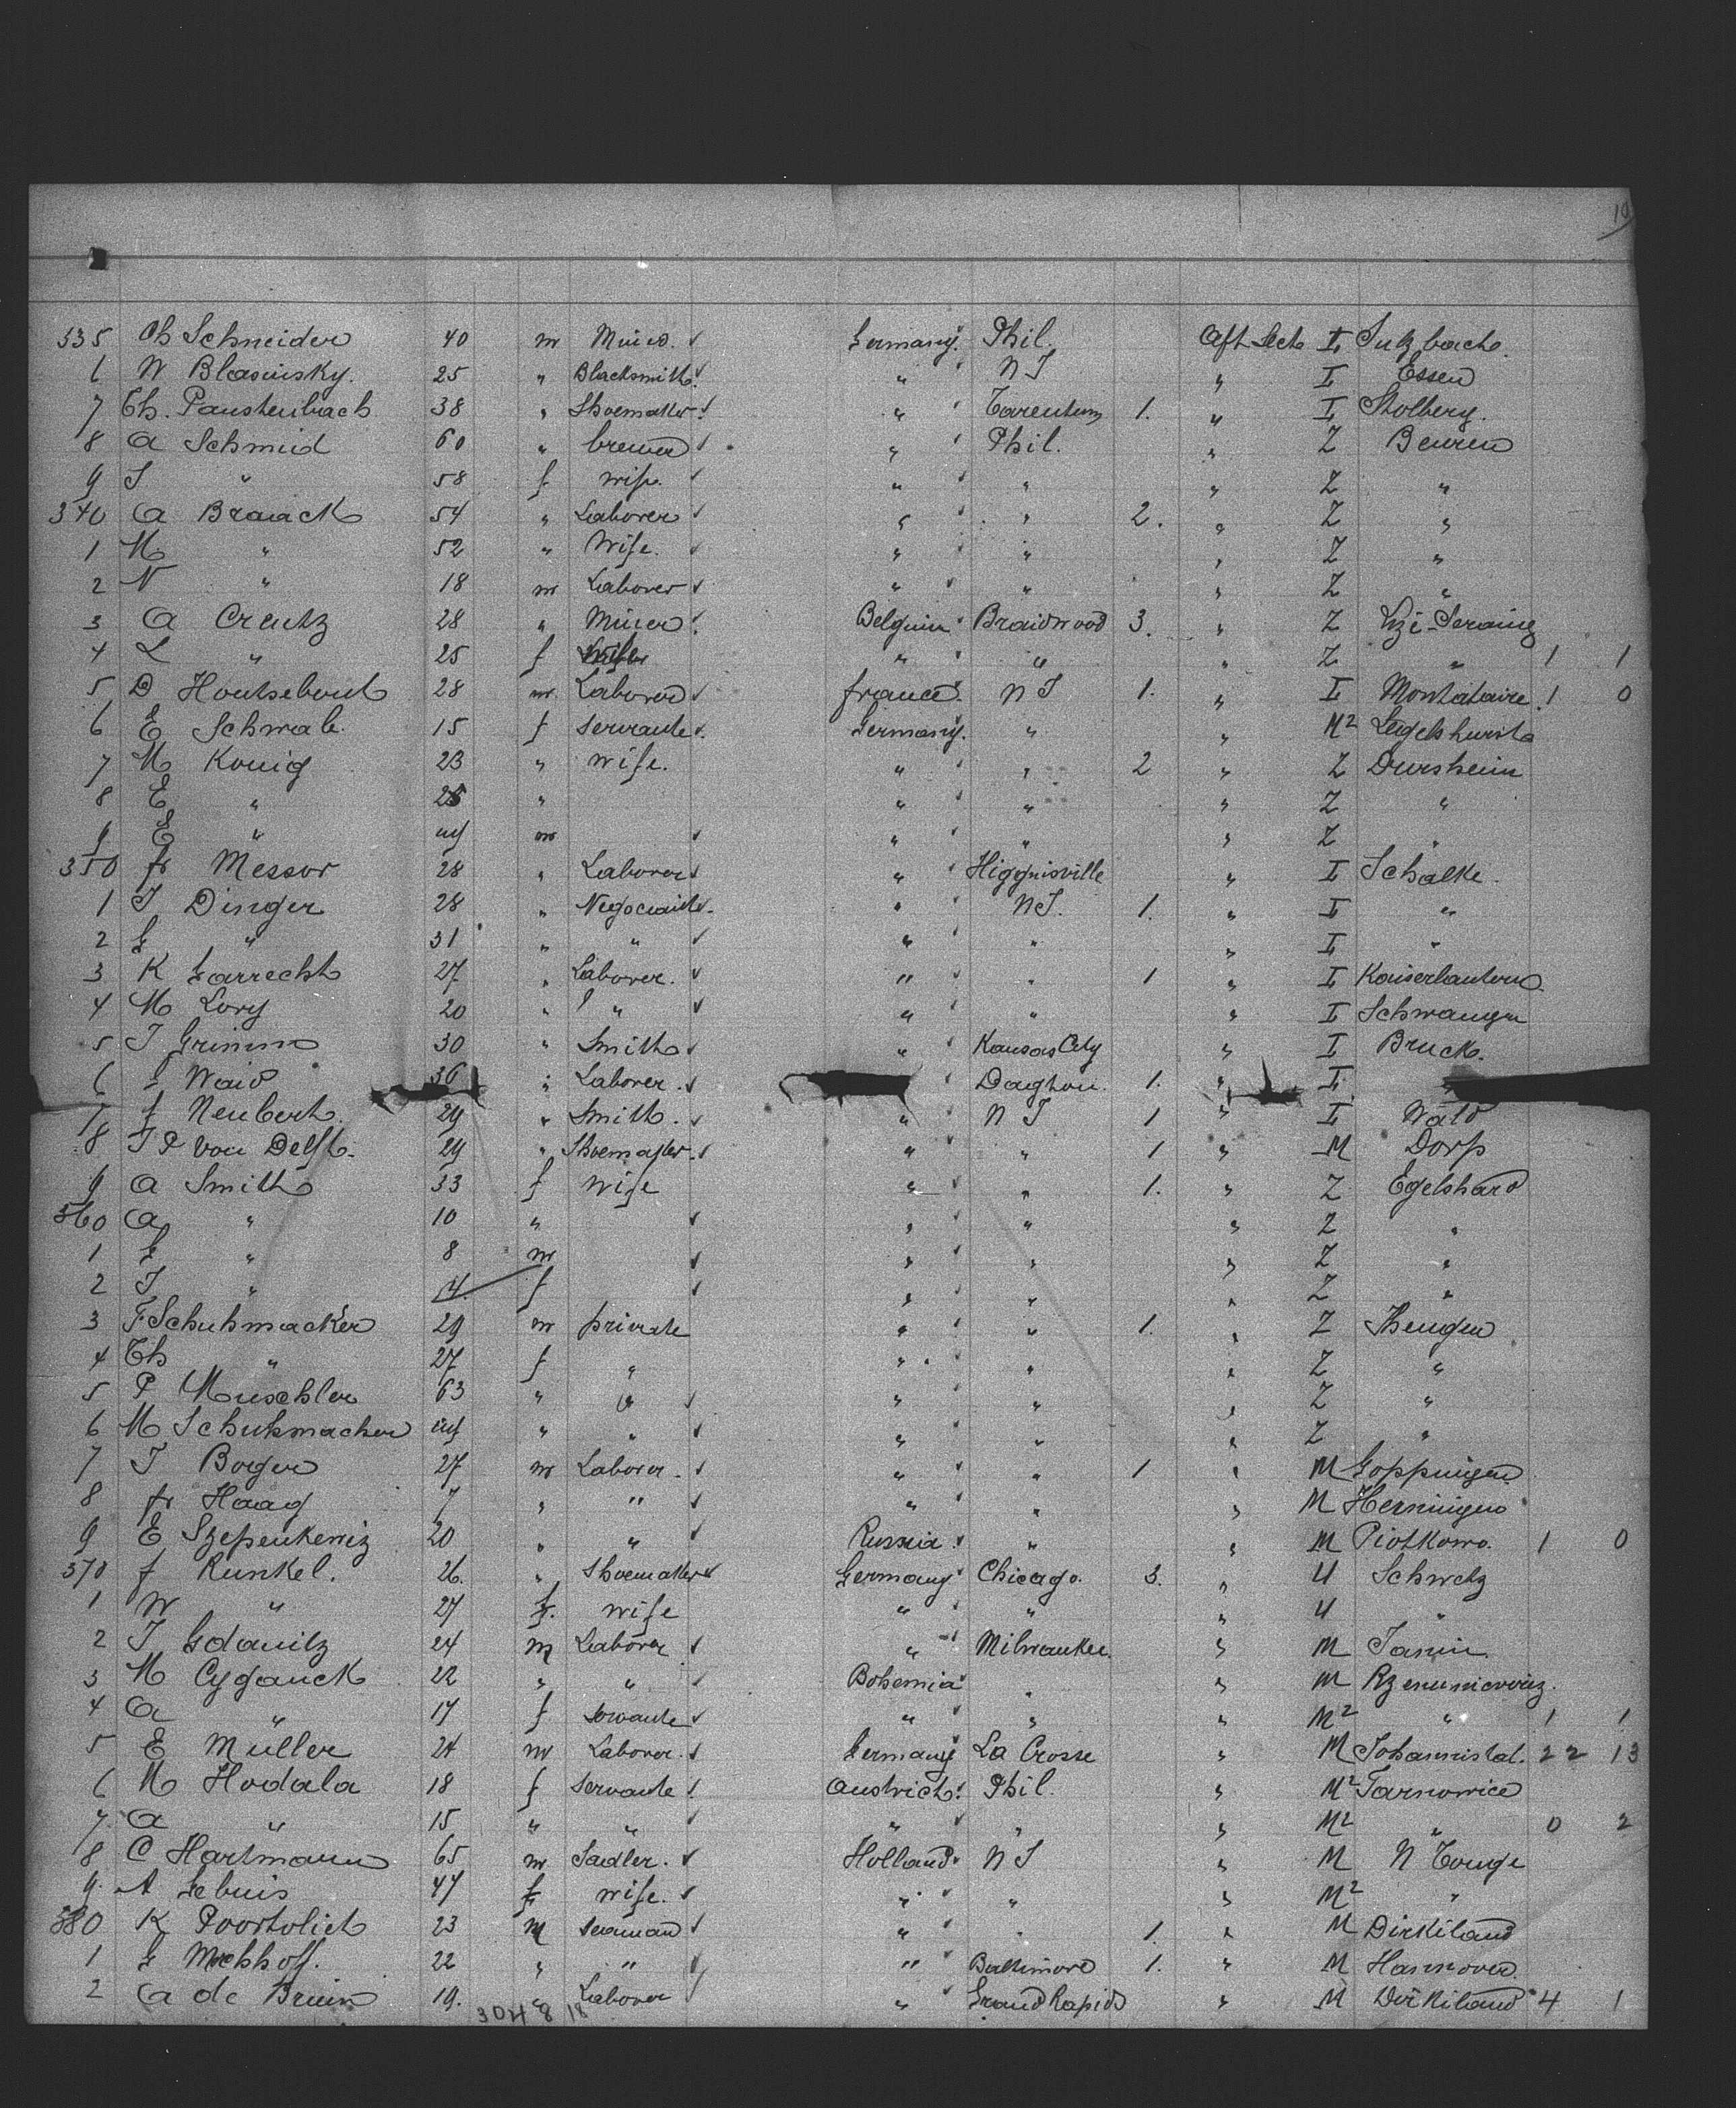 10
335 Ch Schneider 40 m Miner. Germany. Phil. Aft Deck I Sulzbach.
6 W Blasinsky. 25 " Blacksmith " NY " I Essen
7 Ch. Paustenbach 38 " Shoemaker " Tarentum 1. " I Stolberg.
8 A Schmid 60 " brewer " Phil. " Z Beuren
9 J " 58 f wife. " " " Z "
340 A Braack 54 " Laborer " " 2. " Z "
1 M " 52 " Wife. " " " Z "
2 N " 18 m Laborer " " " Z "
3 A Creutz 28 " Miner Belgium Braidwood 3. " Z Seraing
4 L " 25 f Wife " " " Z " 1 1
5 D Houtsebout 28 m. Laborer france. NY 1. " I Montataire. 1 0
6 E Schwab 15 f servante. Germany. " " M2 Legelshurst
7 M Konig 23 " wife. " " 2 " Z Dursheim
8 E " 25 " " " " Z "
9 E " inf m " " " Z "
350 fr Messor 28 " Laborer " Higginsville " I Schalke.
1 J Dinger 28 " Negociant. " NY. 1. " I "
2 G " 31 " " " " " I "
3 K Garrecht 27 " Laborer. " " 1 " I Kaiserlautern
4 M Lory 20 " " " " " I Schwangen
5 J Grimm 30 " Smith " Kansas City " I Bruck.
6 Waid 36 " Laborer. Dayton. 1. " I "
7 f Neubert. 29 " Smith. " NY 1 " I Wald
8 J P von Delft. 29 " Shoemaker. " " 1 " M Dorp
9 A Smith 33 f wife " " 1. " Z Egelshard
360 A " 10 " " " " Z "
1 G " 8 m " " " Z "
2 J " 4 f " " " Z "
3 F. Schuhmacker 29 m private " " 1. " Z Thengen
4 Th " 27 f " " " " Z "
5 P Muschler 63 " " " " " Z "
6 M Schuhmacher inf " " " " " Z "
7 J Boger 27 m Laborer. " " 1 " M Goppingen
8 fr Haag 7 " " " " " M Herningen
9 E Szepenkewiz 20 " " Russia. " " M Piotkowo. 1 0
370 f Runkel. 26. " Shoemaker Germany Chicago. 3. " U Schwetz
1 W " 27 f. wife " " " U "
2 J Gdanitz 24 m Laborer " Milwaukee. " M Janin
3 M Cyganck 22 " " Bohemia " " M
4 A " 17 f servante " " " M2 " 1 1
5 E Müller 24 m Laborer. Germany La Crosse " M Johannistal. 22 13
6 M Hodala 18 f servante Austrich. Phil. " M2 Tarnowice
7. A " 15 " " " " " M2 " 0 2
8 C Hartmann 65 m Sadler. Holland NY " M N Tonge
9. A Gebuis 47 f wife. " " " M2 "
380 K Poortvliet 23 m seaman " " 1. " M Dirkiland
1 G Mechhoff. 22 " " " Baltimore 1. " M Hannover
2 A de Bruin 19. " Laborer " Grand Rapids " M Dirkiland 4 1
304 8 18